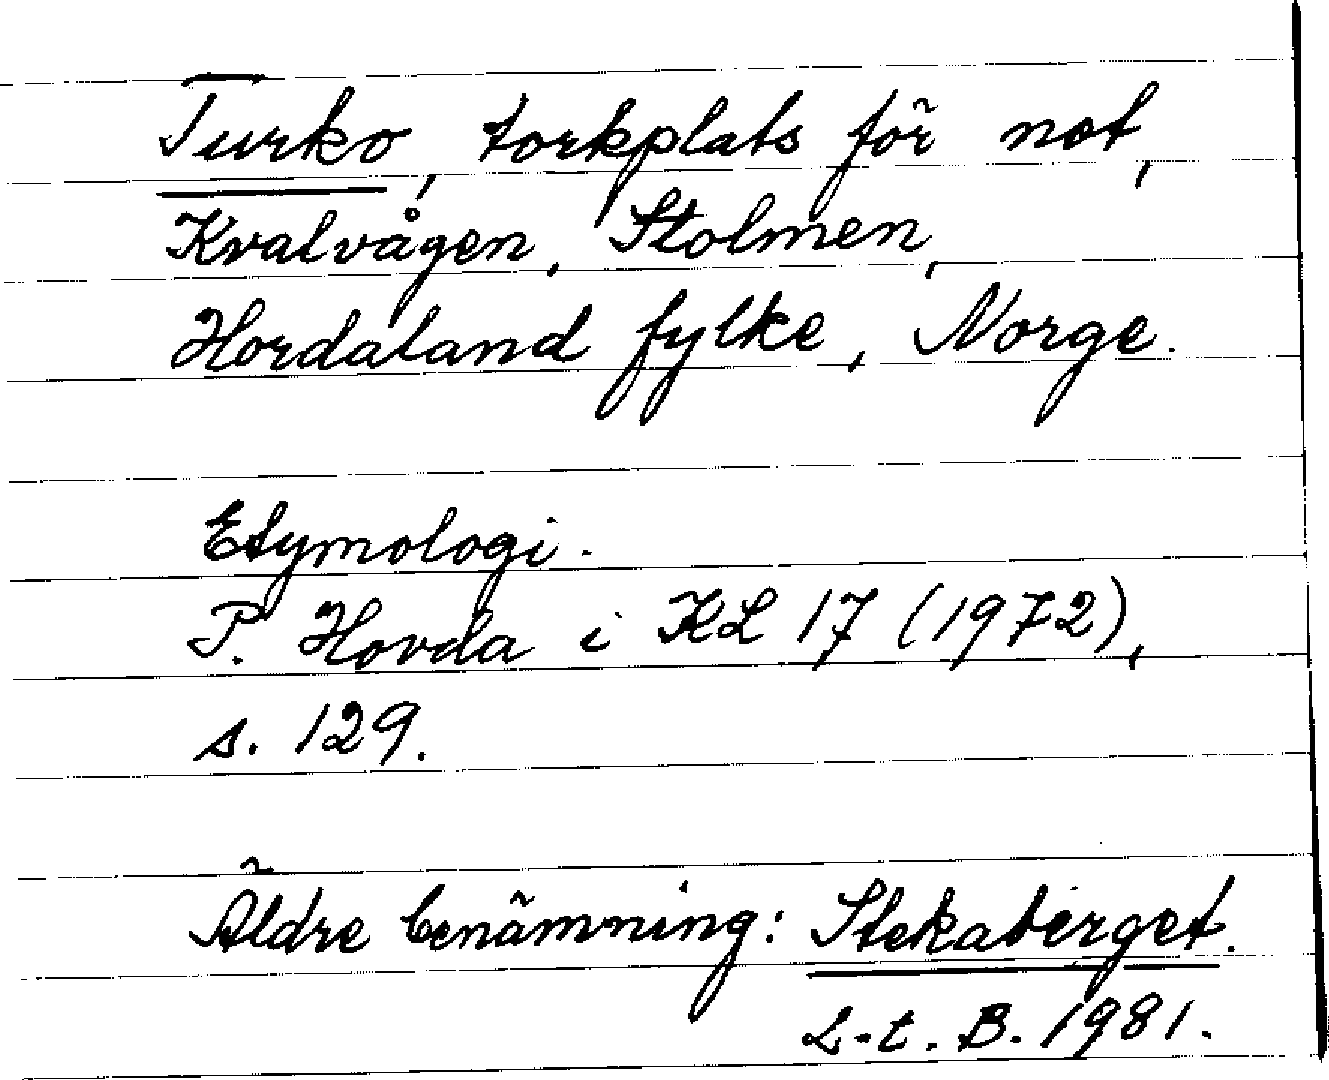 Turko, torkplats för not,
Kvalvågen, Stolmen,
Hordaland fylke, Norge.
Etymologi.
P. Hovda i KL 17 (1972),
s. 129.
Äldre benämning: Stekaberget.
L-t. B. 1981.